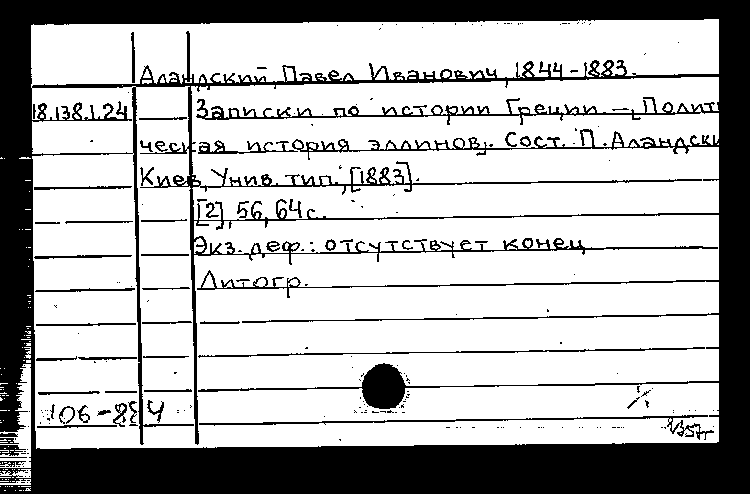 Аландский, Павел Иванович, 1844-1883.
18.138.1.24 Записки по истории Греции. – [Полити
ческая история эллинов]. Сост. П. Аландски
Киев, Унив. тип., [1883].
[2], 56, 64 с.
Экз. деф.: отсутствует конец
Литогр.